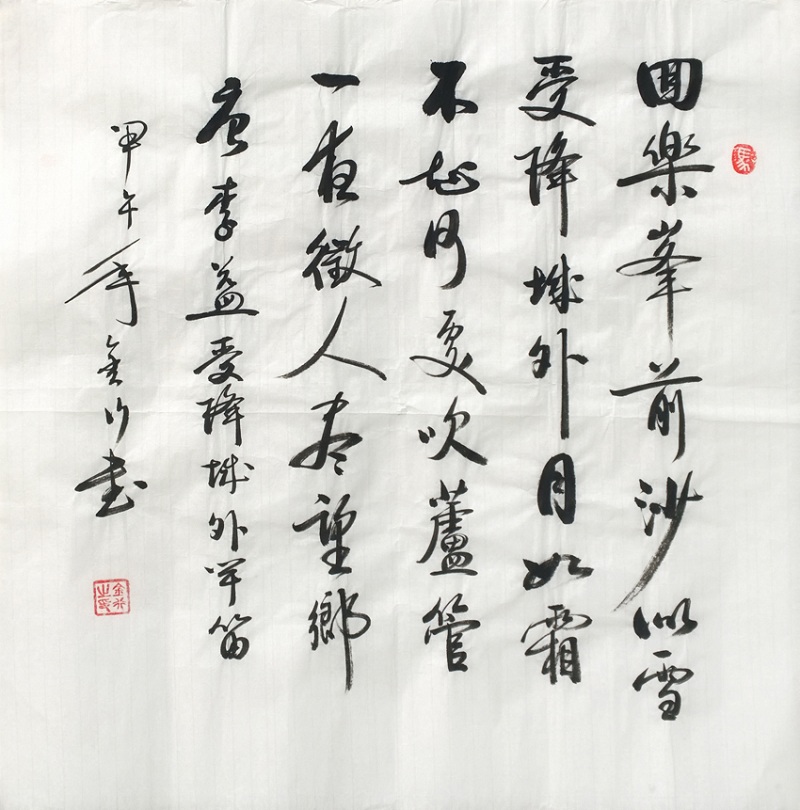 回樂峯前沙似雪
受降城外月如霜
不知何處吹蘆管
一夜徵人盡望鄉
唐李益受降城外聞笛
甲午年金行書